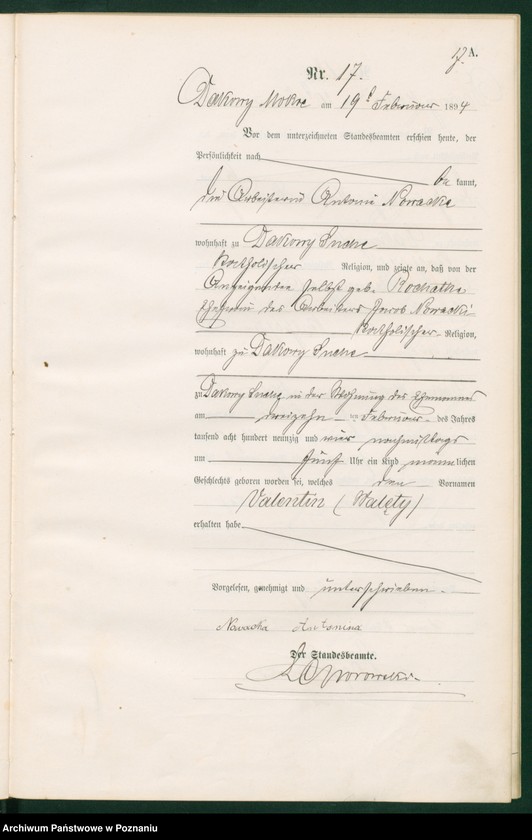 17.
A.
Nr. 17.
Dakowy Mokre am 19t Februar 1894
Vor dem unterzeichneten Standesbeamten erschien heute, der
Persönlichkeit nach
be kannt,
die Arbeiterin Antonie Nowacka
wohnhaft zu Dakowy Suche
katholischer Religion, und zeigte an, daß von der
Anzeigenden selbst geb.
Ehefrau des Arbeiters Jacob Nowacki
katholischer Religion,
wohnhaft zu Dakowy Suche
zu Dakowy Suche in der Wohnung des Ehemannes
am dreizehn ten Februar des Jahres
tausend acht hundert neunzig und vier nachmittags
um fünf Uhr ein Kind männlichen
Geschlechts geboren worden sei, welches den Vornamen
Valentin (Walęty)
erhalten habe
Vorgelesen, genehmigt und unterschrieben.
Nowacka Antonina
Der Standesbeamte.
Archiwum Państwowe w Poznaniu